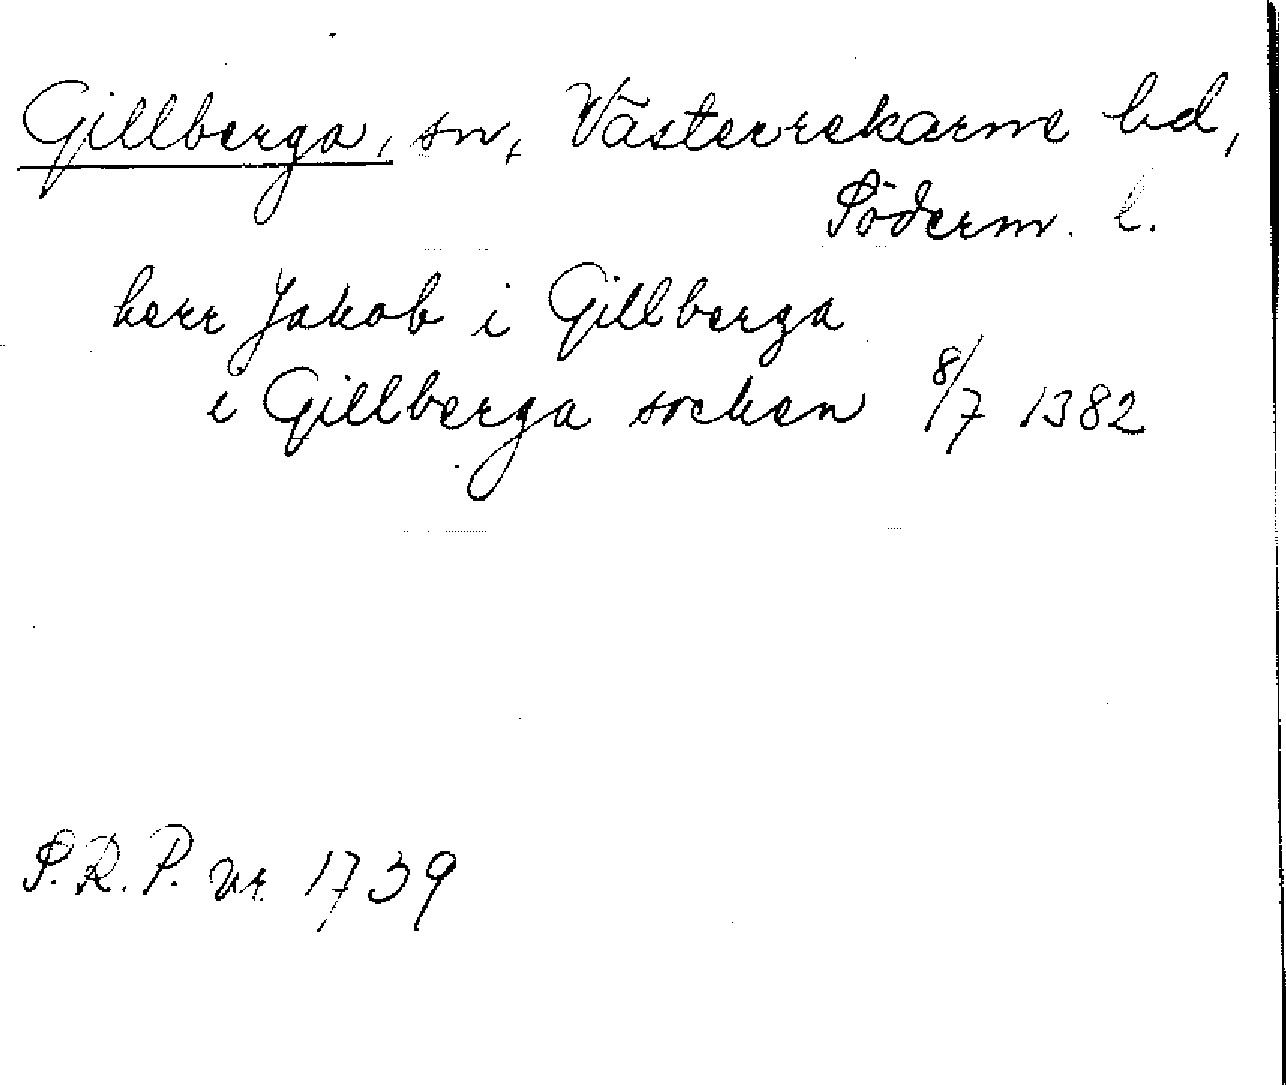 Gillberga, sn, Västerrekarne hd,
Söderm. l.
herr Jakob i Gillberga
i Gillberga socken 8/7 1382
S.R.P. nr 1739